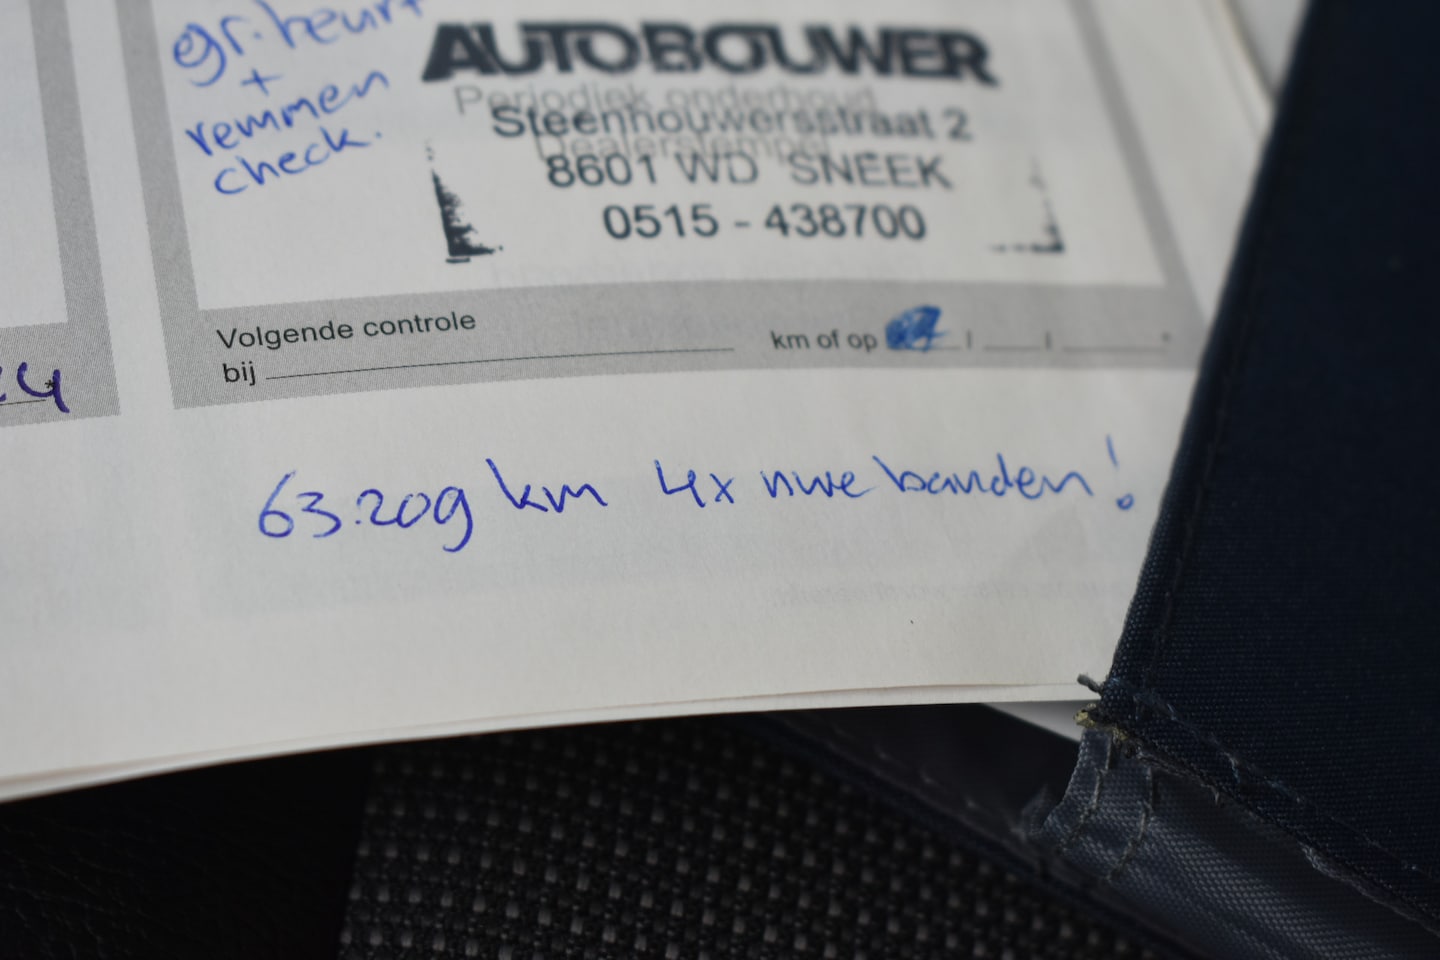 gr. beurt
+
remmen
check.
AUTOBOUWER
Periodiek onderhoud
Steenhouwersstraat 2
Dealerstempel
8601 WD SNEEK
0515 - 438700
Volgende controle
bij
km of op
4
63.209 km 4x nwe banden!